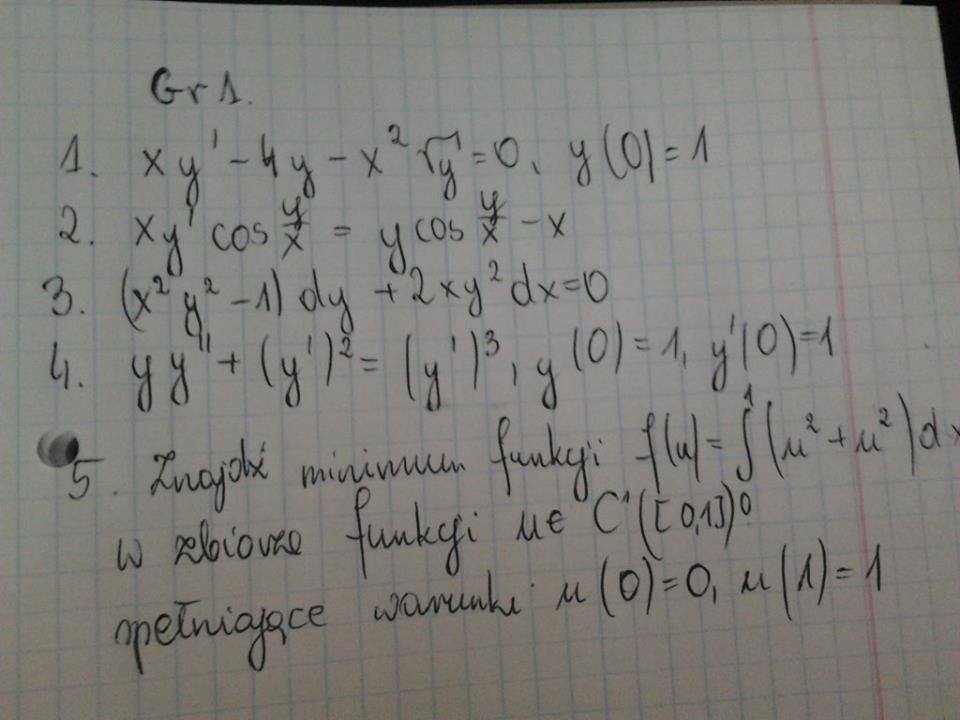 Gr 1.
1. xy' - 4y - x² √y = 0, y(0) = 1
2. xy' cos y/x = y cos y/x - x
3. (x²y² - 1) dy + 2xy² dx = 0
4. yy'' + (y')² = (y')³, y(0) = 1, y'(0) = 1
5. Znajdź minimum funkcji f(u) = ∫₀¹ (u² + u²) dx
w zbiorze funkcji u ∈ C¹([0,1])
spełniające warunki u(0) = 0, u(1) = 1